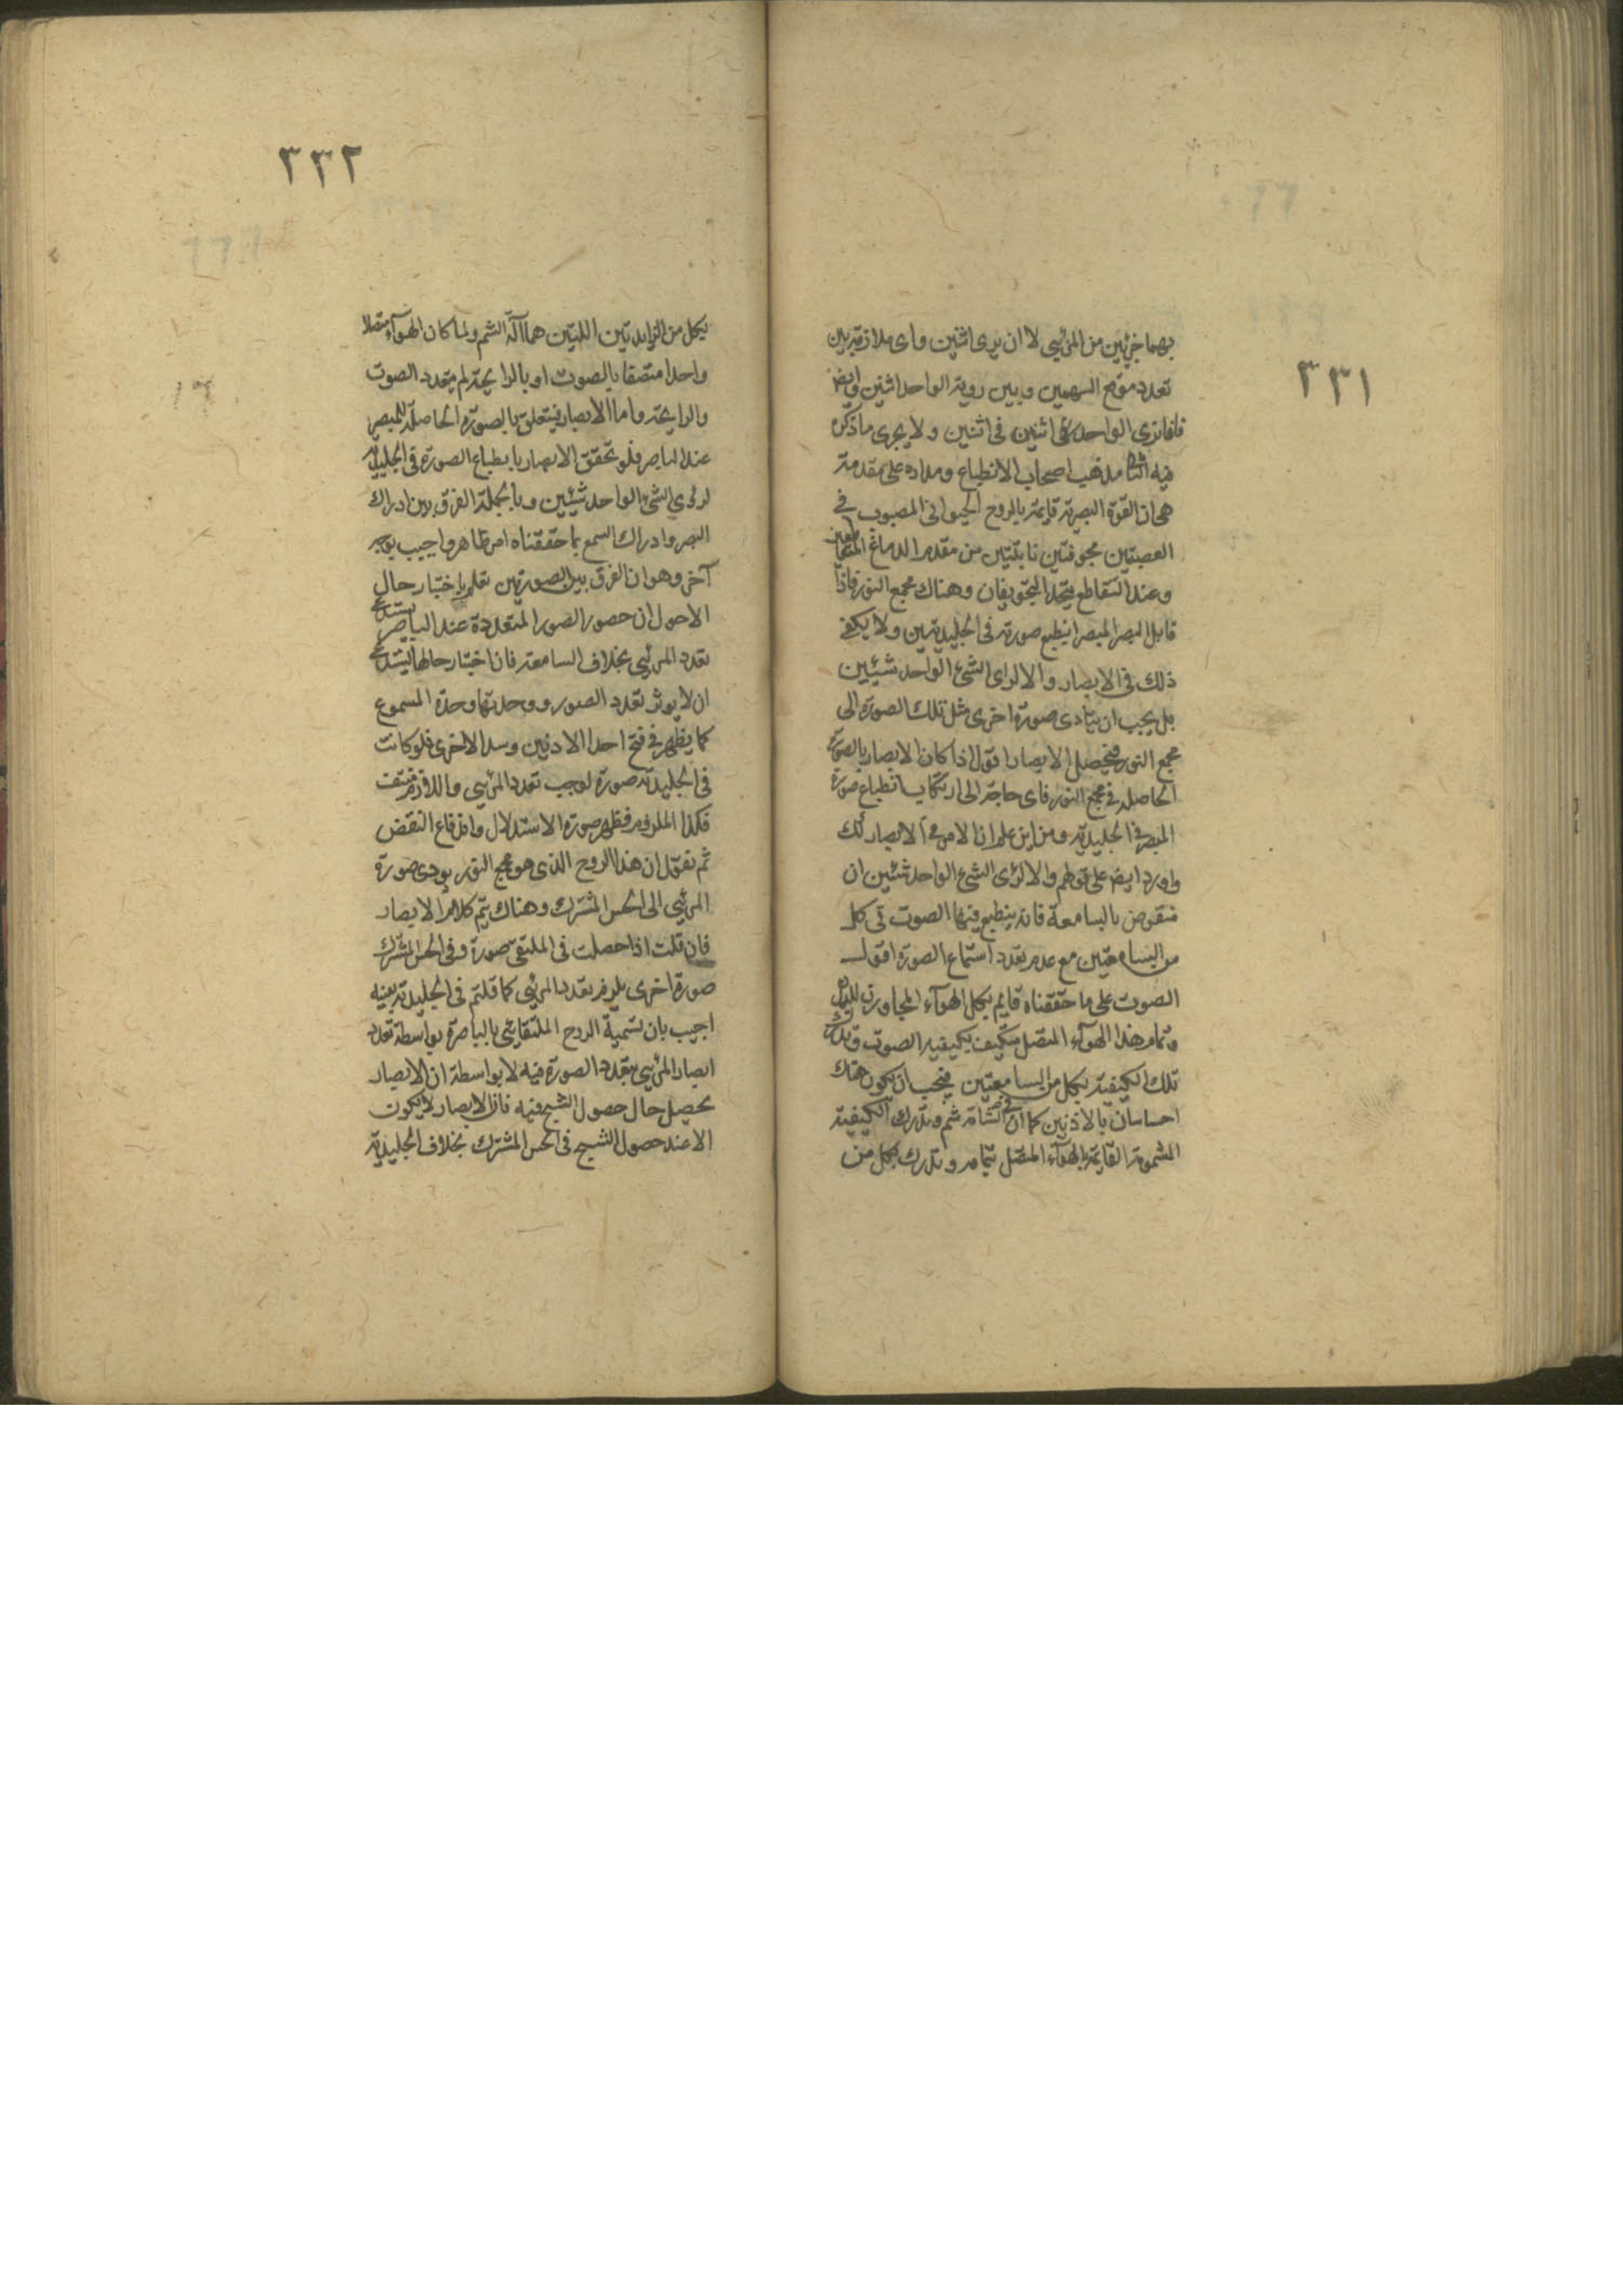 ٣٣١
بهما جزئين من المرئى لا ان يرى اثنين واى ملازمة بين
تعدد موقع السهمين وبين روية الواحد اثنين وايضا
فانا نرى الواحد فى اثنين ولا يجرى ما ذكره
فيه مذهب اصحاب الانطباع ومداره على مقدمة
هى ان القوة البصرية قايمة بالروح الحيوانى المصبوب فى
العصبتين مجوفتين نابتتين من مقدم الدماغ
وعند التقاطع يتحد التجويفان وهناك مجمع النور فاذا
قابل البصر المبصر انطبع صورته فى الجليديتين ولا يكفى
ذلك فى الابصار والا لراى الشئ الواحد شيئين
بل يجب ان يتادى صورة اخرى مثل تلك الصورة الى
مجمع النور فيحصل الابصار اقول اذا كان الابصار بالصورة
الحاصلة فى مجمع النور فاى حاجة الى ارتكاب انطباع صورة
المبصر فى الجليدية ومن اين علم ان الامر فى الابصار كك
واورد ايض على قولهم والا لرؤى الشئ الواحد شيئين ان
منقوض بالسامعة فانه ينطبع فيها الصوت فى كل
من السامعتين مع عدم تعدد استماع الصورة اقول
الصوت على ما حققناه قايم بكل الهواء المجاور
وتمام هذا الهواء المتصل متكيف بكيفية الصوت وتدرك
تلك الكيفية بكل من السامعتين فيجب ان يكون هناك
احساسان بالاذنين كما ان فى الشامة شم وتدرك الكيفية
المشمومة القايمة بالهواء المتصل بتمامه وتدرك بكل من
٣٣٢
بكل من الزايدتين اللتين هما آلة الشم ولما كان الهواء متصلا
واحدا متصفا بالصوت او بالرايحة لم يتعدد الصوت
والرايحة واما الابصار فيتعلق بالصورة الحاصلة للمبصر
عند الباصر فلو تحقق الابصار بانطباع الصورة فى الجليدية
لرؤى الشئ الواحد شيئين وبالجملة الفرق بين ادراك
البصر وادراك السمع بما حققناه امر ظاهر واجيب بوجه
آخر وهو ان الفرق بين الصورتين تعلم باختبار حال
الاحول ان حصور الصور المتعددة عند الباصر يستدعى
تعدد المرئى بخلاف السامعة فان اختبار حالها يستدعى
ان لا يوثر تعدد الصور ووحدتها وحدة المسموع
كما يظهر فى فتح احد الاذنين وسد الاخرى فلو كانت
فى الجليدية صورة لوجب تعدد المرئى واللازم منتف
فكذا الملزوم فظهر صورة الاستدلال واندفاع النقض
ثم نقول ان هذا الروح الذى هو مجمع النور يودى صورة
المرئى الى الحس المشترك وهناك يتم كلام الابصار
فان قلت اذا حصلت فى الملتقى صورة وفى الحس المشترك
صورة اخرى يلزم تعدد المرئى كما قلتم فى الجليدية بعينه
اجيب بان تسمية الروح الملتقايى بالباصرة بواسطة تعدد
ابصار المرئى بتعدد الصورة فيه لا بواسطة ان الابصار
يحصل حال حصول الشبح فيه فان الابصار لا يكون
الا عند حصول الشبح فى الحس المشترك بخلاف الجليدية